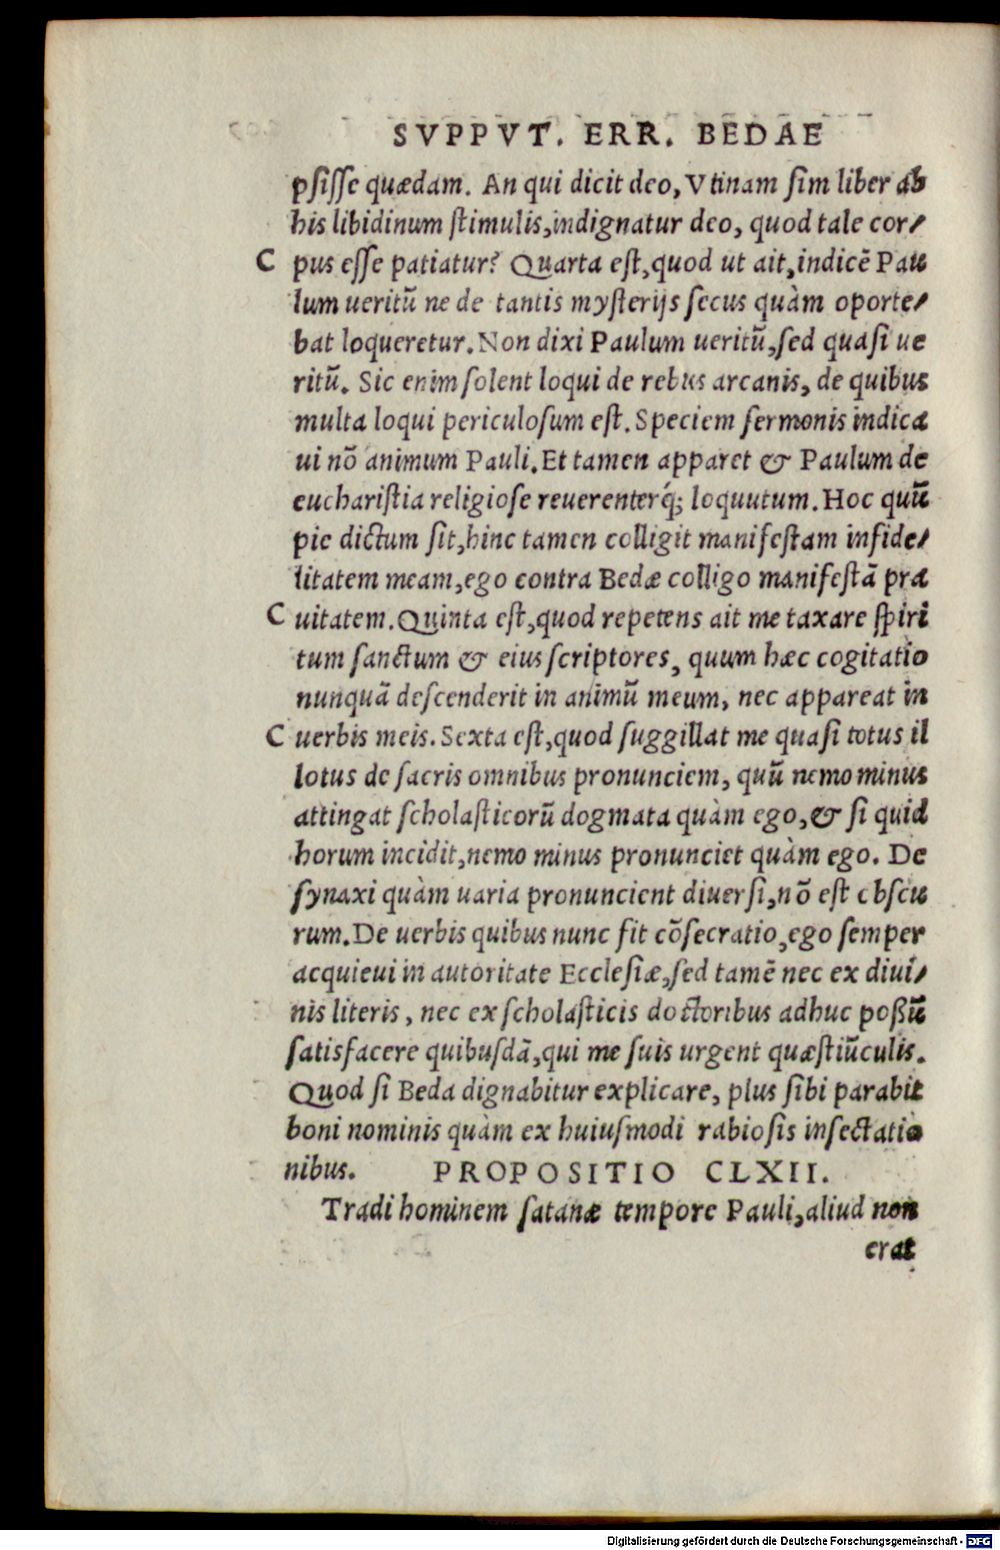 SVPPVT. ERR. BEDAE
psisse quædam. An qui dicit deo, Vtinam sim liber ab
his libidinum stimulis, indignatur deo, quod tale cor/
C pus esse patiatur? Quarta est, quod ut ait, indicē Pau
lum ueritū ne de tantis mysterijs secus quàm oporte/
bat loqueretur. Non dixi Paulum ueritū, sed quasi ue
ritū. Sic enim solent loqui de rebus arcanis, de quibus
multa loqui periculosum est. Speciem sermonis indica
ui nō animum Pauli. Et tamen apparet & Paulum de
eucharistia religiose reuerenterq́; loquutum. Hoc quū
pie dictum sit, hinc tamen colligit manifestam infide/
litatem meam, ego contra Bedæ colligo manifestā pra
C uitatem. Quinta est, quod repetens ait me taxare spiri
tum sanctum & eius scriptores, quum hæc cogitatio
nunquā descenderit in animū meum, nec appareat in
C uerbis meis. Sexta est, quod suggillat me quasi totus il
lotus de sacris omnibus pronunciem, quū nemo minus
attingat scholasticorū dogmata quàm ego, & si quid
horum incidit, nemo minus pronunciet quàm ego. De
synaxi quàm uaria pronuncient diuersi, nō est obscu
rum. De uerbis quibus nunc fit cōsecratio, ego semper
acquieui in autoritate Ecclesiæ, sed tamē nec ex diui/
nis literis, nec ex scholasticis doctoribus adhuc poßū
satisfacere quibusdā, qui me suis urgent quæstiūculis.
Quod si Beda dignabitur explicare, plus sibi parabit
boni nominis quàm ex huiusmodi rabiosis insectatio
nibus. PROPOSITIO CLXII.
Tradi hominem satanæ tempore Pauli, aliud non
erat
Digitalisierung gefördert durch die Deutsche Forschungsgemeinschaft - DFG